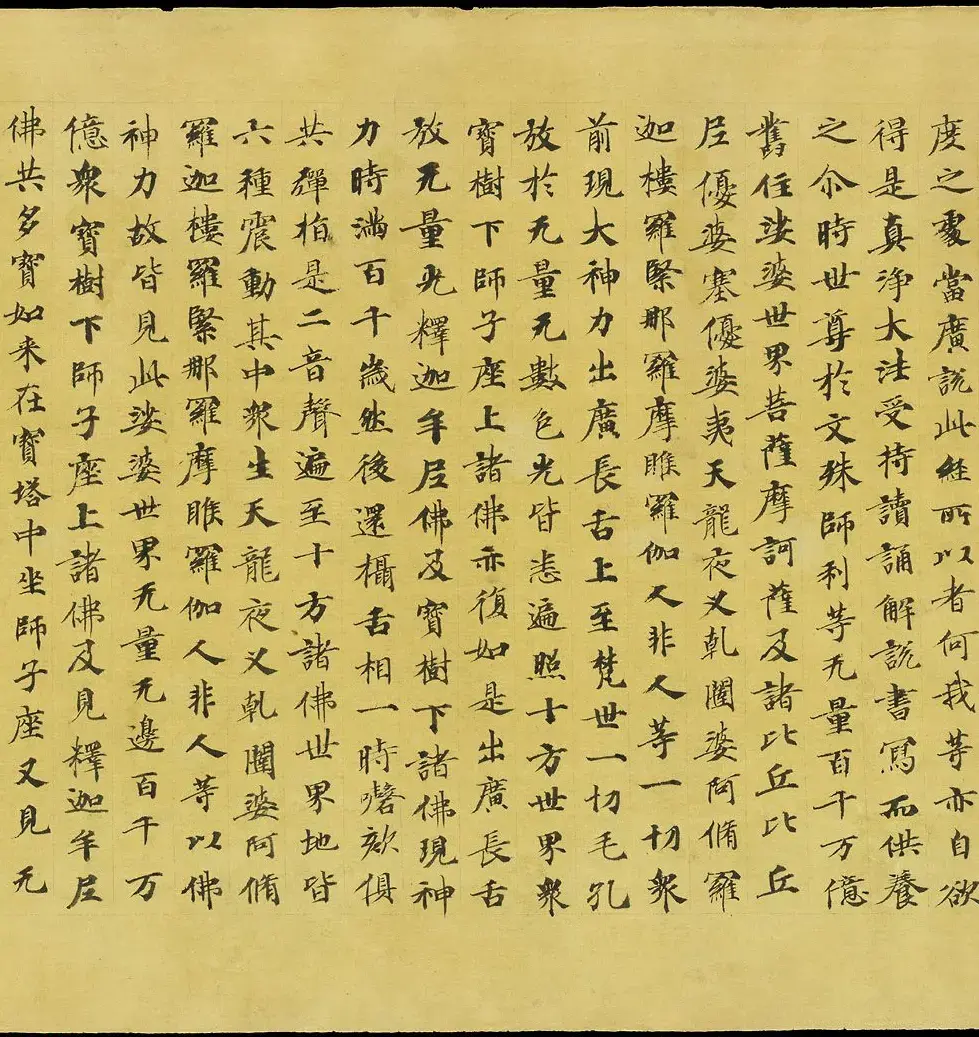 度之處當廣說此經所以者何我等亦自欲
得是真淨大法受持讀誦解說書寫而供養
之尒時世尊於文殊師利等无量百千万億
舊住娑婆世界菩薩摩訶薩及諸比丘比丘
尼優婆塞優婆夷天龍夜叉乹闥婆阿脩羅
迦樓羅緊那羅摩睺羅伽人非人等一切衆
前現大神力出廣長舌上至梵世一切毛孔
放於无量无數色光皆悉遍照十方世界衆
寶樹下師子座上諸佛亦復如是出廣長舌
放无量光釋迦牟尼佛及寶樹下諸佛現神
力時滿百千歲然後還攝舌相一時謦欬俱
共彈栢是二音聲遍至十方諸佛世界地皆
六種震動其中衆生天龍夜叉乹闥婆阿脩
羅迦樓羅緊那羅摩睺羅伽人非人等以佛
神力故皆見此娑婆世界无量无邊百千万
億衆寶樹下師子座上諸佛及見釋迦牟尼
佛共多寶如来在寶塔中坐師子座又見无